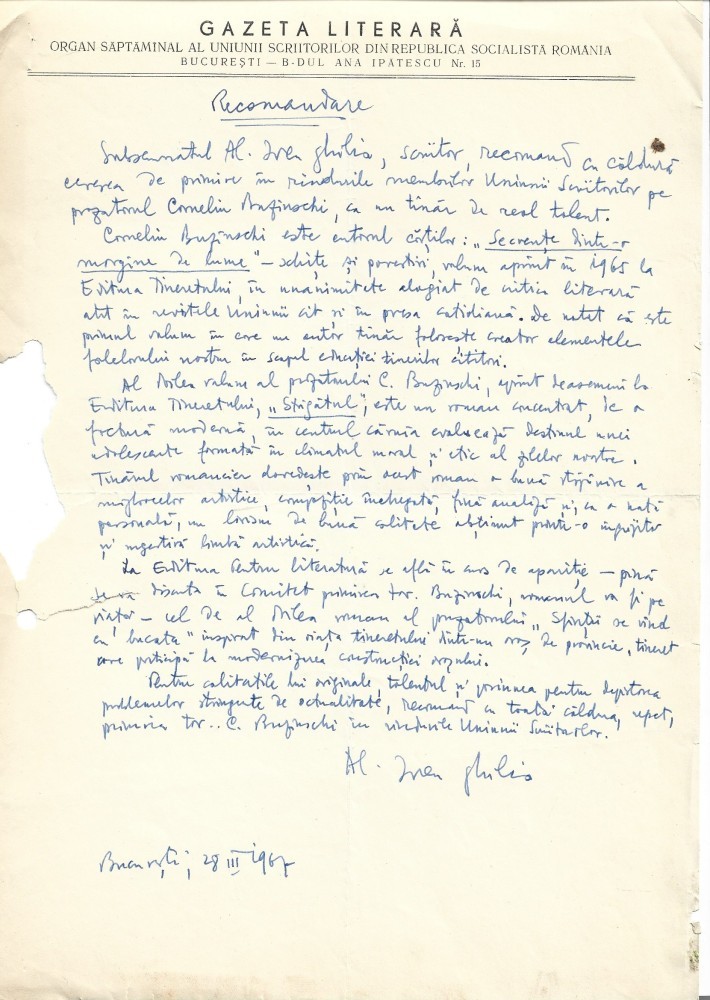 GAZETA LITERARĂ
ORGAN SAPTAMINAL AL UNIUNII SCRIITORILOR DIN REPUBLICA SOCIALISTA ROMANIA
BUCUREȘTI — B-DUL ANA IPATESCU Nr. 15
Recomandare
Subsemnatul Al. Ivan Ghilia, scriitor, recomand cu căldură
cererea de primire în rîndurile membrilor Uniunii Scriitorilor pe
prozatorul Corneliu Buzinschi, ca un tînăr de real talent.
Corneliu Buzinschi este autorul cărților: „Secvențe dintr-o
margine de lume" – schițe și povestiri, volum apărut în 1965 la
Editura Tineretului, în unanimitate elogiat de critica literară
atît în revistele Uniunii cît și în presa cotidiană. De notat că este
primul volum în care un autor tînăr folosește creator elementele
folclorului nostru în scopul educației tinerilor cititori.
Al doilea volum al prozatorului C. Buzinschi, apărut deasemeni la
Editura Tineretului, „Strigătul", este un roman concentrat, de o
factură modernă, în centrul căruia evoluează destinul unei
adolescente formată în climatul moral și etic al zilelor noastre.
Tînărul romancier dovedește prin acest roman o bună stăpînire a
mijloacelor artistice, compoziție închegată, fină analiză și, ca o notă
personală, un lirism de bună calitate obținut printr-o
și sugestivă limbă artistică.
La Editura Pentru literatură se află în curs de apariție – pînă
se va discuta în Comitet primirea tov. Buzinschi, romanul va fi pe
piață – cel de al doilea roman al prozatorului „Sfinții se vînd
cu bucata" inspirat din viața tineretului dintr-un oraș de provincie, tineret
care participă la modernizarea construcției orașului.
Pentru calitățile lui originale, talentul și pasiunea pentru depistarea
problemelor stringente de actualitate, recomand cu toată căldura, repet,
primirea tov. C. Buzinschi în rîndurile Uniunii Scriitorilor.
Al. Ivan Ghilia
București, 28 III 1967